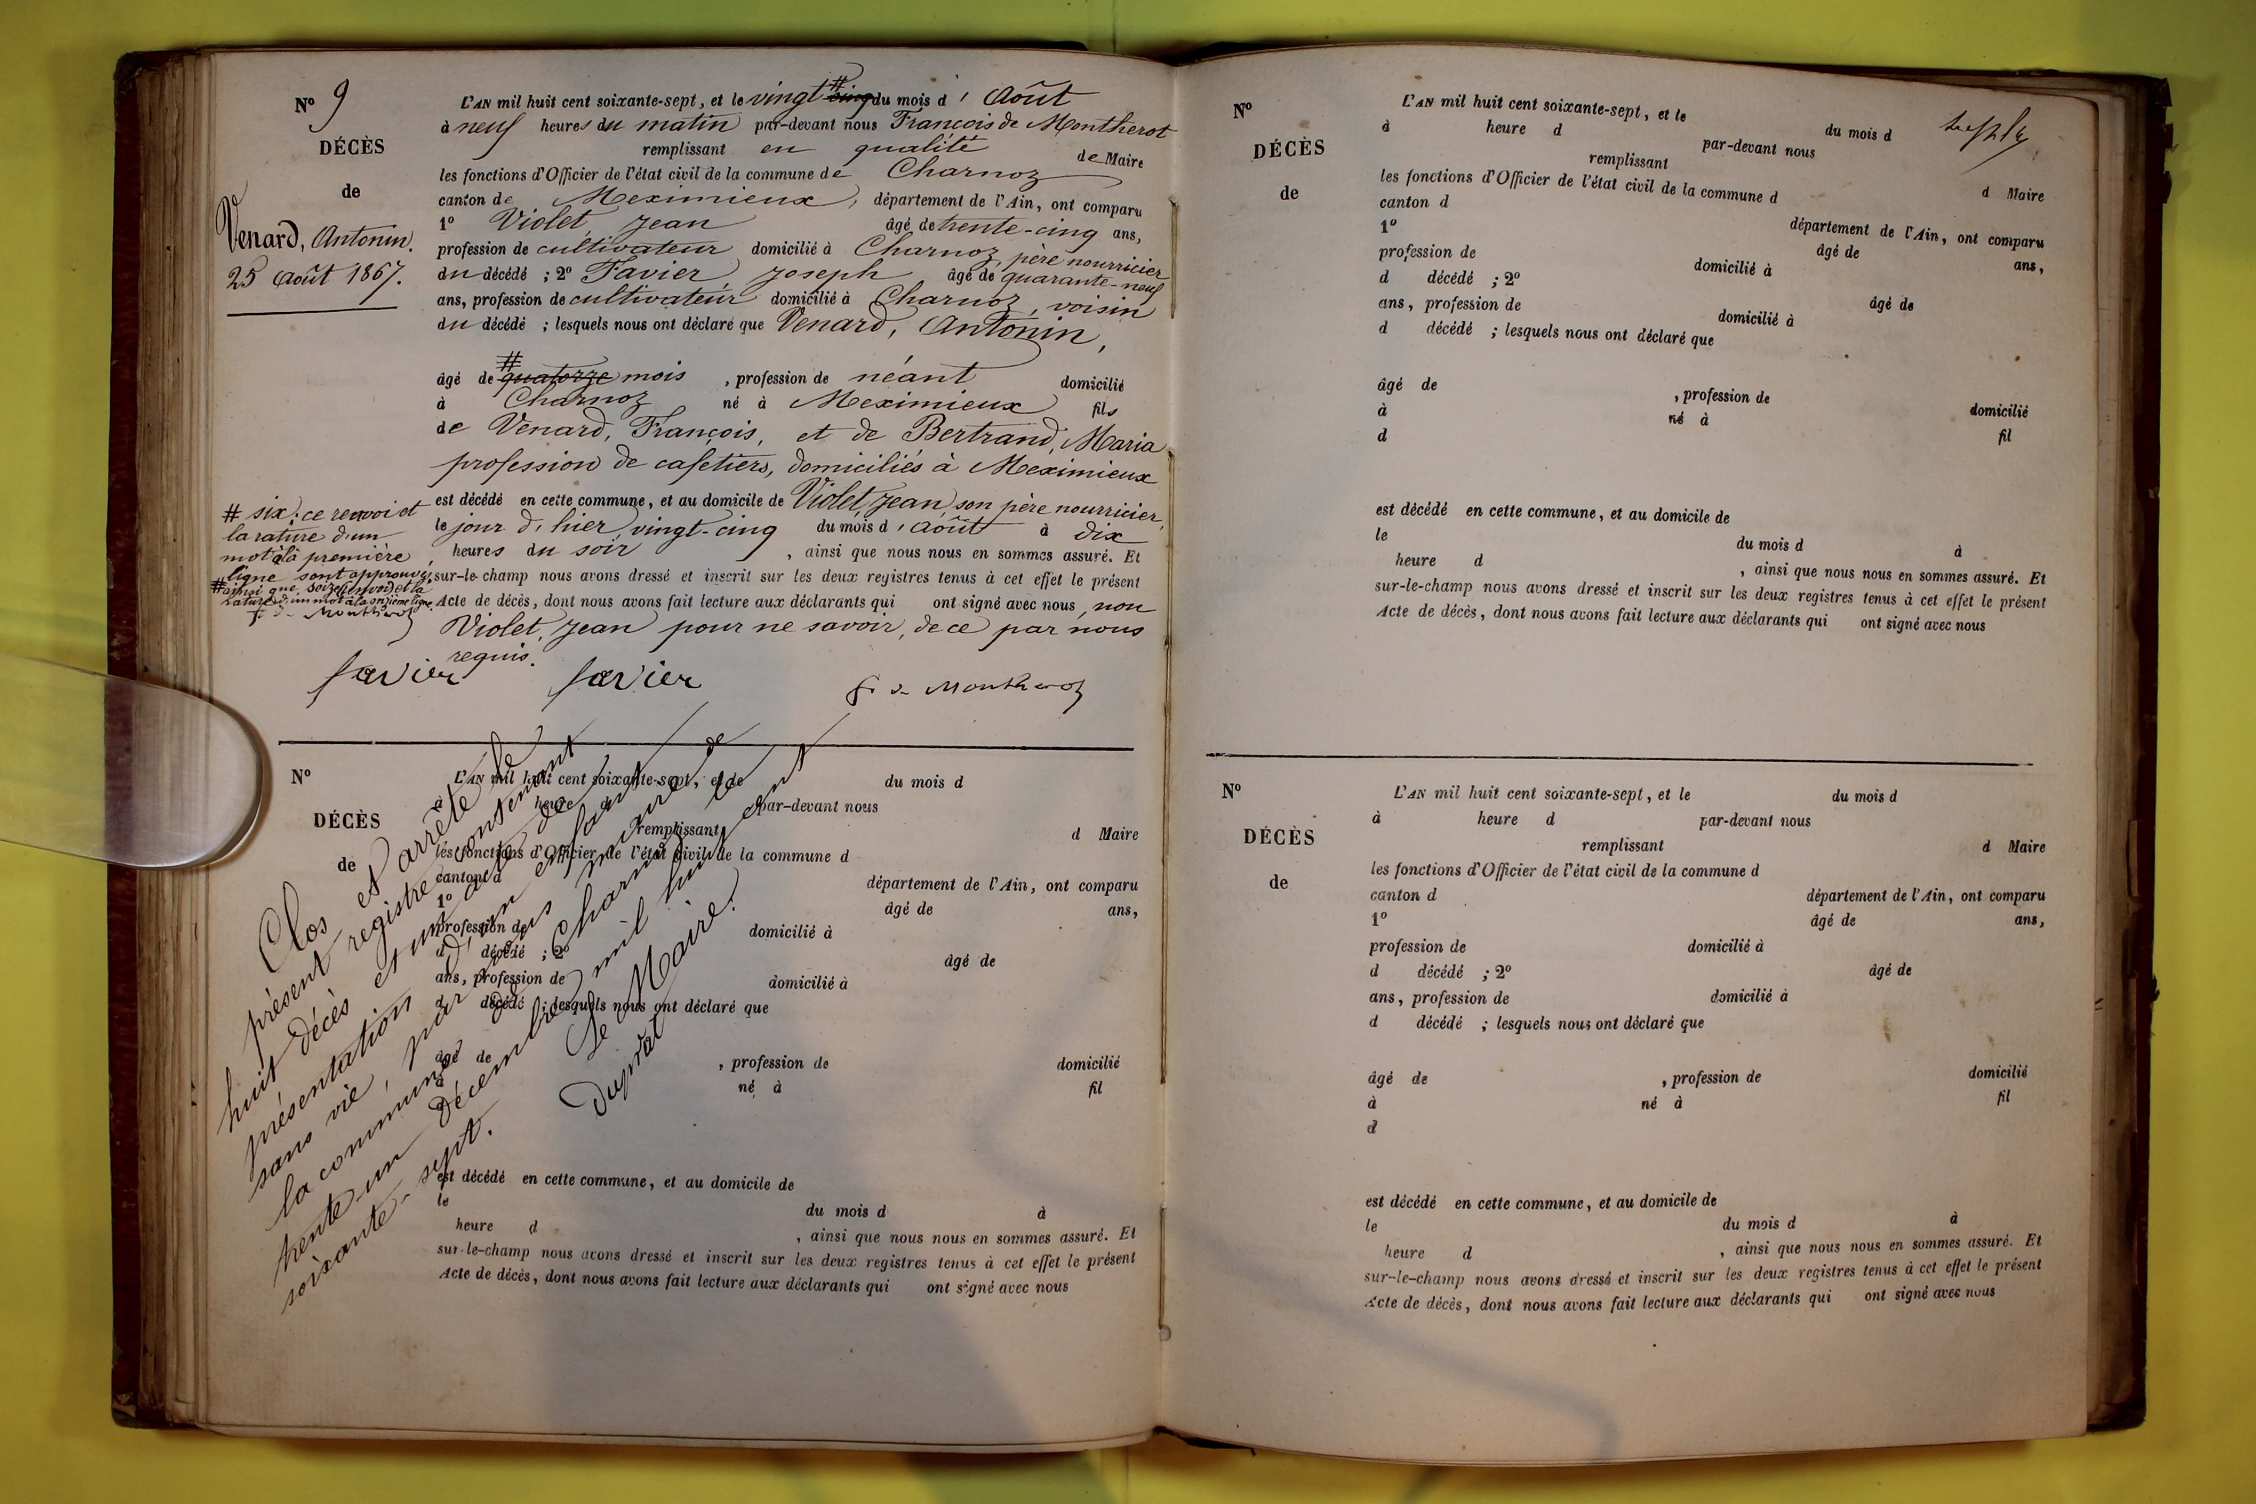 Nº 9
DÉCÈS
de
Venard, Antonin.
25 Août 1867.
L'AN mil huit cent soixante-sept, et le vingt # cinq du mois d'Août
à neuf heures du matin par-devant nous François de Montherot
remplissant en qualité de Maire
les fonctions d'Officier de l'état civil de la commune de Charnoz
canton de Meximieux, département de l'Ain, ont comparu
1º Violet, Jean âgé de trente-cinq ans,
profession de cultivateur domicilié à Charnoz, père nourricier
du décédé ; 2º Favier, Joseph âgé de quarante-neuf
ans, profession de cultivateur domicilié à Charnoz, voisin
du décédé ; lesquels nous ont déclaré que Venard, Antonin,
âgé de # quatorze mois, profession de néant domicilié
à Charnoz né à Meximieux fils
de Venard, François, et de Bertrand, Maria
profession de cafetiers, domiciliés à Meximieux
est décédé en cette commune, et au domicile de Violet, Jean, son père nourricier,
le jour d'hier vingt-cinq du mois d'Août à dix
heures du soir, ainsi que nous nous en sommes assuré. Et
sur-le-champ nous avons dressé et inscrit sur les deux registres tenus à cet effet le présent
Acte de décès, dont nous avons fait lecture aux déclarants qui ont signé avec nous, non
Violet, Jean pour ne savoir, de ce par nous
requis.
# six; ce renvoi et
la rature d'un
mot à la première
ligne sont approuvés,
# ainsi que seize renvoi et la
rature d'un mot à la onzième ligne
F. de Montherot
Favier Favier F. de Montherot
Nº
DÉCÈS
de
L'AN mil huit cent soixante-sept, et le du mois d
à heure d par-devant nous
remplissant d Maire
les fonctions d'Officier de l'état civil de la commune d
canton d département de l'Ain, ont comparu
1º âgé de ans,
profession de domicilié à
d décédé ; 2º âgé de
ans, profession de domicilié à
d décédé ; lesquels nous ont déclaré que
âgé de , profession de domicilié
à né à fil
est décédé en cette commune, et au domicile de
le du mois d à
heure d , ainsi que nous nous en sommes assuré. Et
sur-le-champ nous avons dressé et inscrit sur les deux registres tenus à cet effet le présent
Acte de décès, dont nous avons fait lecture aux déclarants qui ont signé avec nous
Clos et arrêté le
présent registre contenant
huit décès et un acte de
présentation d'un enfant
sans vie, par nous maire de
la commune de Charnoz le
trente-un décembre mil huit cent
soixante-sept.
Le Maire.
Duprat
Nº
DÉCÈS
de
L'AN mil huit cent soixante-sept, et le du mois d
à heure d par-devant nous
remplissant d Maire
les fonctions d'Officier de l'état civil de la commune d
canton d département de l'Ain, ont comparu
1º âgé de ans,
profession de domicilié à
d décédé ; 2º âgé de
ans, profession de domicilié à
d décédé ; lesquels nous ont déclaré que
âgé de , profession de domicilié
à né à fil
d
est décédé en cette commune, et au domicile de
le du mois d à
heure d , ainsi que nous nous en sommes assuré. Et
sur-le-champ nous avons dressé et inscrit sur les deux registres tenus à cet effet le présent
Acte de décès, dont nous avons fait lecture aux déclarants qui ont signé avec nous
Nº
DÉCÈS
de
L'AN mil huit cent soixante-sept, et le du mois d
à heure d par-devant nous
remplissant d Maire
les fonctions d'Officier de l'état civil de la commune d
canton d département de l'Ain, ont comparu
1º âgé de ans,
profession de domicilié à
d décédé ; 2º âgé de
ans, profession de domicilié à
d décédé ; lesquels nous ont déclaré que
âgé de , profession de domicilié
à né à fil
d
est décédé en cette commune, et au domicile de
le du mois d à
heure d , ainsi que nous nous en sommes assuré. Et
sur-le-champ nous avons dressé et inscrit sur les deux registres tenus à cet effet le présent
Acte de décès, dont nous avons fait lecture aux déclarants qui ont signé avec nous